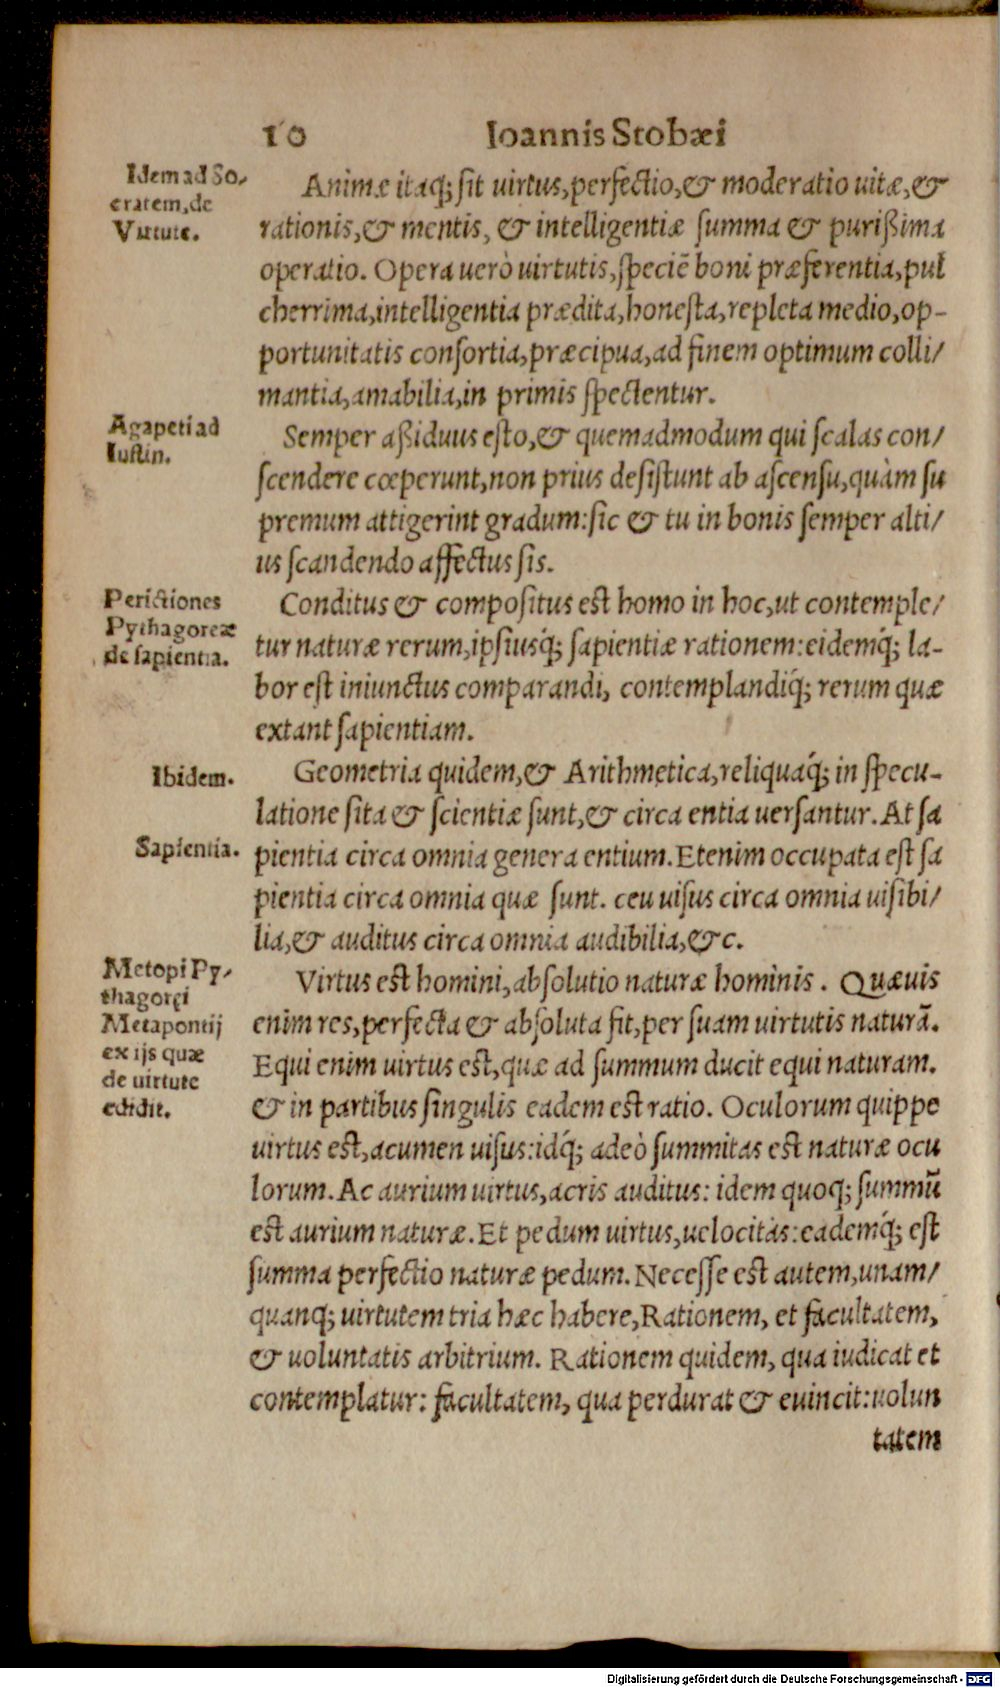 10 Ioannis Stobæi
Idem ad So⸗
cratem, de
Virtute.
Animæ itaq; sit uirtus, perfectio, & moderatio uitæ, &
rationis, & mentis, & intelligentiæ summa & purißima
operatio. Opera uerò uirtutis, speciē boni præferentia, pul
cherrima, intelligentia prædita, honesta, repleta medio, op-
portunitatis consortia, præcipua, ad finem optimum colli/
mantia, amabilia, in primis spectentur.
Agapeti ad
Iustin.
Semper aßiduus esto, & quemadmodum qui scalas con/
scendere cœperunt, non prius desistunt ab ascensu, quàm su
premum attigerint gradum: sic & tu in bonis semper alti/
us scandendo affectus sis.
Perictiones
Pythagoreæ
de sapientia.
Conditus & compositus est homo in hoc, ut contemple/
tur naturæ rerum, ipsiusq́; sapientiæ rationem: eidemq́; la-
bor est iniunctus comparandi, contemplandiq́; rerum quæ
extant sapientiam.
Ibidem.
Geometria quidem, & Arithmetica, reliquaq́; in specu-
latione sita & scientiæ sunt, & circa entia uersantur. At sa
Sapientia.
pientia circa omnia genera entium. Etenim occupata est sa
pientia circa omnia quæ sunt. ceu uisus circa omnia uisibi/
lia, & auditus circa omnia audibilia, &c.
Metopi Py⸗
thagoręi
Metapontij
ex ijs quæ
de uirtute
edidit.
Virtus est homini, absolutio naturæ hominis. Quæuis
enim res, perfecta & absoluta fit, per suam uirtutis naturā.
Equi enim uirtus est, quæ ad summum ducit equi naturam.
& in partibus singulis eadem est ratio. Oculorum quippe
uirtus est, acumen uisus: idq́; adeò summitas est naturæ ocu
lorum. Ac aurium uirtus, acris auditus: idem quoq; summū
est aurium naturæ. Et pedum uirtus, uelocitas: eademq́; est
summa perfectio naturæ pedum. Necesse est autem, unam/
quanq; uirtutem tria hæc habere, Rationem, et facultatem,
& uoluntatis arbitrium. Rationem quidem, qua iudicat et
contemplatur: facultatem, qua perdurat & euincit: uolun
tatem
Digitalisierung gefördert durch die Deutsche Forschungsgemeinschaft - DFG